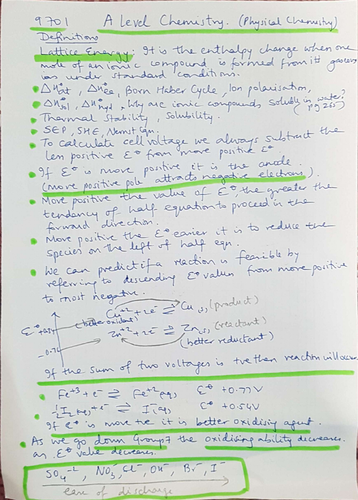 9701 A Level Chemistry. (Physical Chemistry)
Definitions
Lattice Energy: It is the enthalpy change when one
mole of an ionic compound is formed from its gaseous
ions under standard conditions.
ΔH°at, ΔH°ea, Born Haber Cycle, Ion polarisation,
ΔH°sol, ΔH°hyd, Why are ionic compounds soluble in water?
(pg 265)
Thermal Stability, Solubility.
SEP, SHE, Nernst Eqn.
To calculate cell voltage we always subtract the
less positive E° from more positive E°
If E° is more positive it is the anode.
(more positive pole attracts negative electrons).
More positive the value of E° the greater the
tendency of half equation to proceed in the
forward direction.
More positive the E° easier it is to reduce the
species on the left of half eqn.
We can predict if a reaction is feasible by
referring to descending E° values from more positive
to most negative.
Cu+2 + 2e- ⇌ Cu(s) (product)
(better oxidant)
Zn+2 + 2e- ⇌ Zn(s) (reactant)
(better reductant)
If the sum of two voltages is +ve then reaction will occur
Fe+3 + e- ⇌ Fe+2 aq, E° +0.77V
½I2 aq + e- ⇌ I- aq E° +0.54V
If E° is more +ve it is better oxidising agent.
As we go down Group 7 the oxidising ability decreases
as E° value decreases.
SO4-2, NO3-, Cl-, OH-, Br-, I-
Ease of discharge